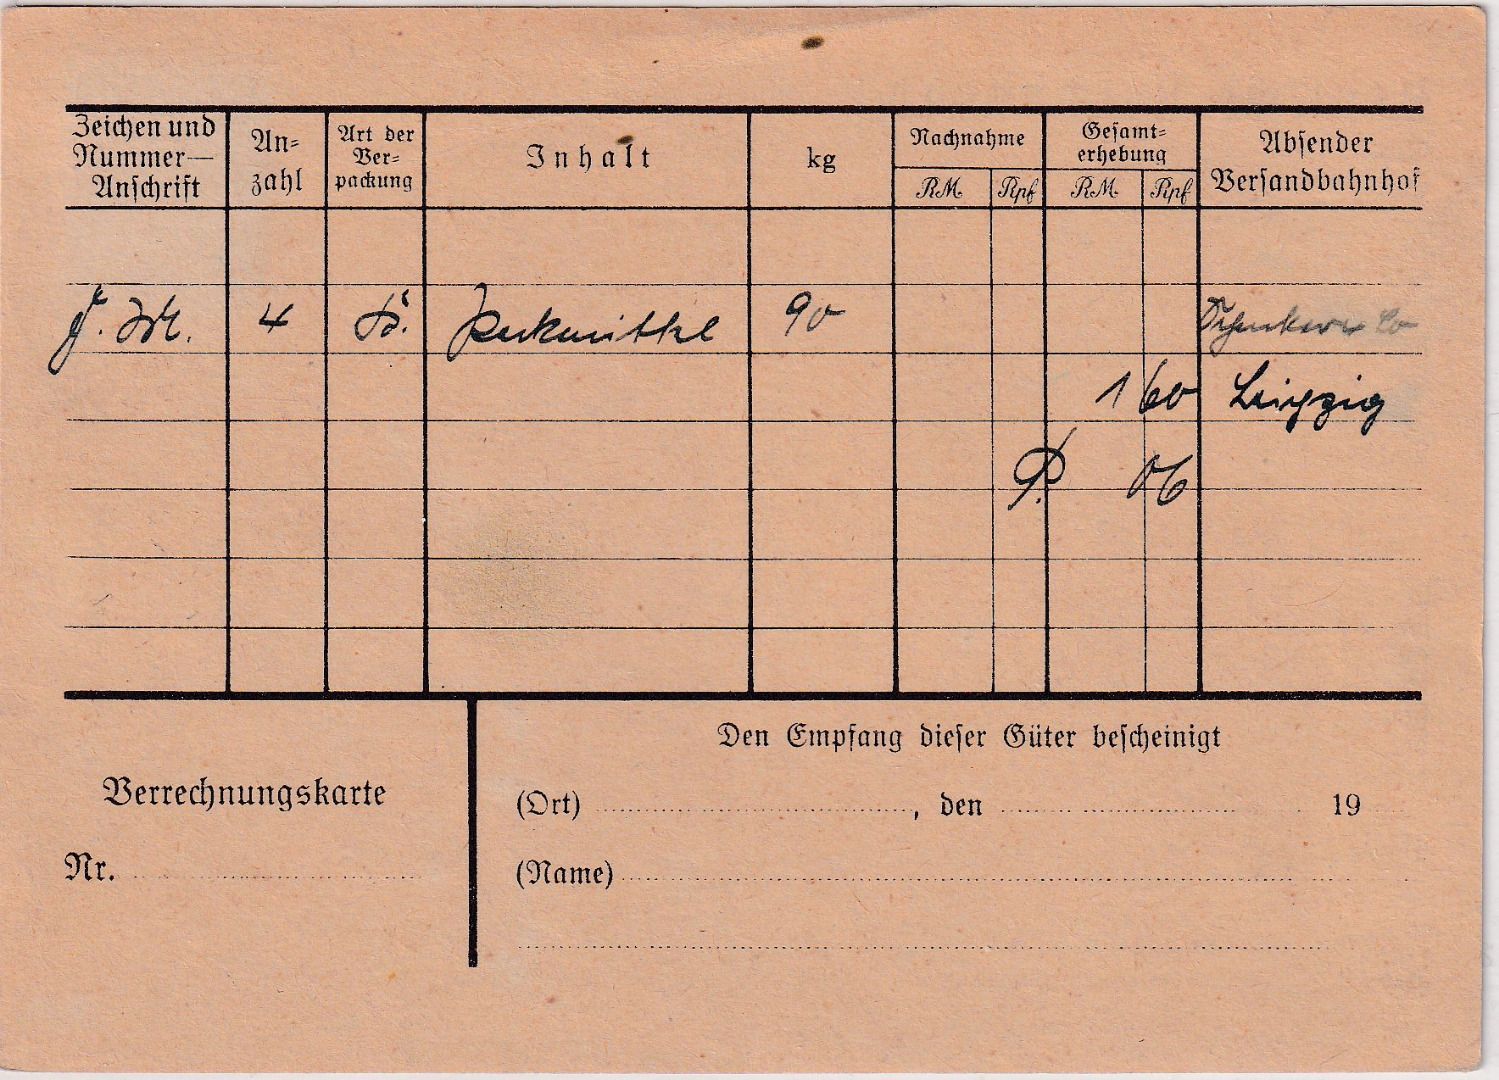 Zeichen und
Nummer—
Anschrift
An-
zahl
Art der
Ver-
packung
Inhalt
kg
Nachnahme
RM. Rpf
Gesamt-
erhebung
RM. Rpf
Absender
Versandbahnhof
4
90
1 60 Leipzig
P. 06
Verrechnungskarte
Nr.
Den Empfang dieser Güter bescheinigt
(Ort) , den 19
(Name)